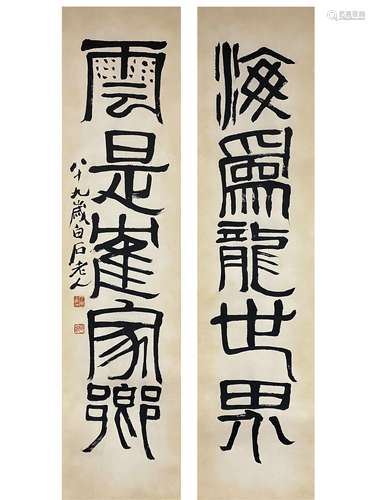 海爲龍世界
雲是隺家鄉
八十九歲白石老人